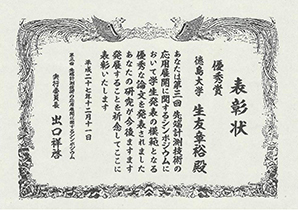 表彰状
優秀賞
徳島大学 生友章裕殿
あなたは第三回先端計測技術の
応用展開に関するシンポジウムに
おいて学生発表の模範となる
優秀な論文を発表されました
あなたの研究が今後ますます
発展することを祈念してここに
表彰いたします
平成二十七年十二月十一日
第三回 先端計測技術の応用展開に関するシンポジウム
実行委員長 出口祥啓